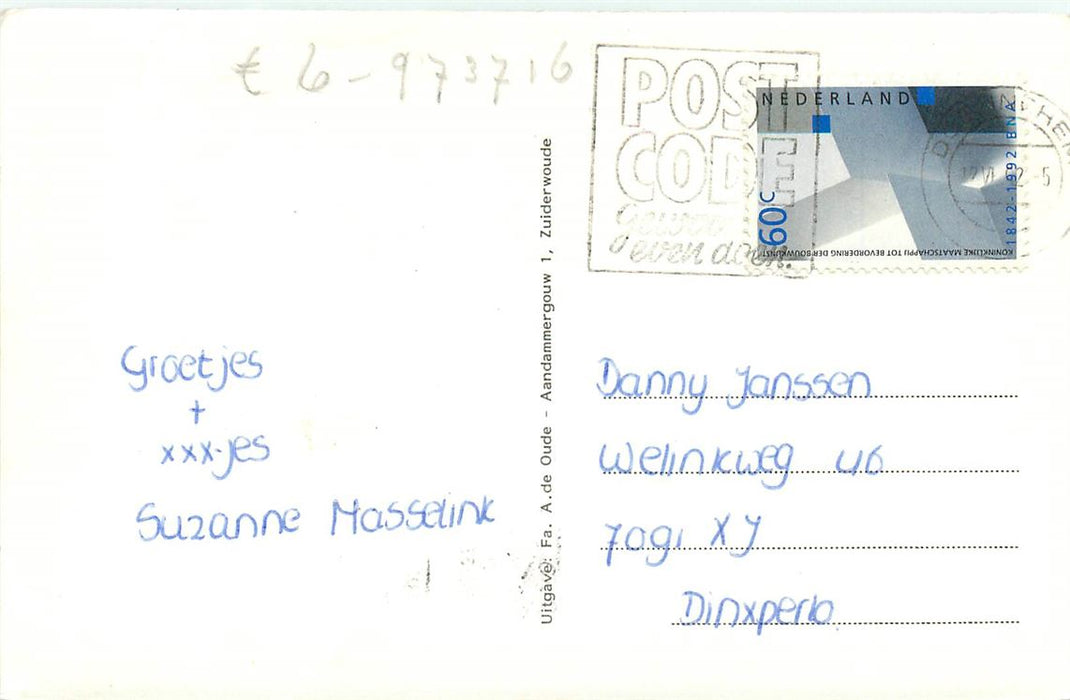 € 6 - 973716
POST
CODE
Gewoo
even doen.
NEDERLAND
60c
1842-1992 BNA
KONINKLIJKE MAATSCHAPPIJ TOT BEVORDERING DER BOUWKUNST
Uitgave: Fa. A. de Oude - Aandammergouw 1, Zuiderwoude
Groetjes
+
xxx-jes
Suzanne Masselink
Danny Janssen
Welinkweg 46
7091 XJ
Dinxperlo